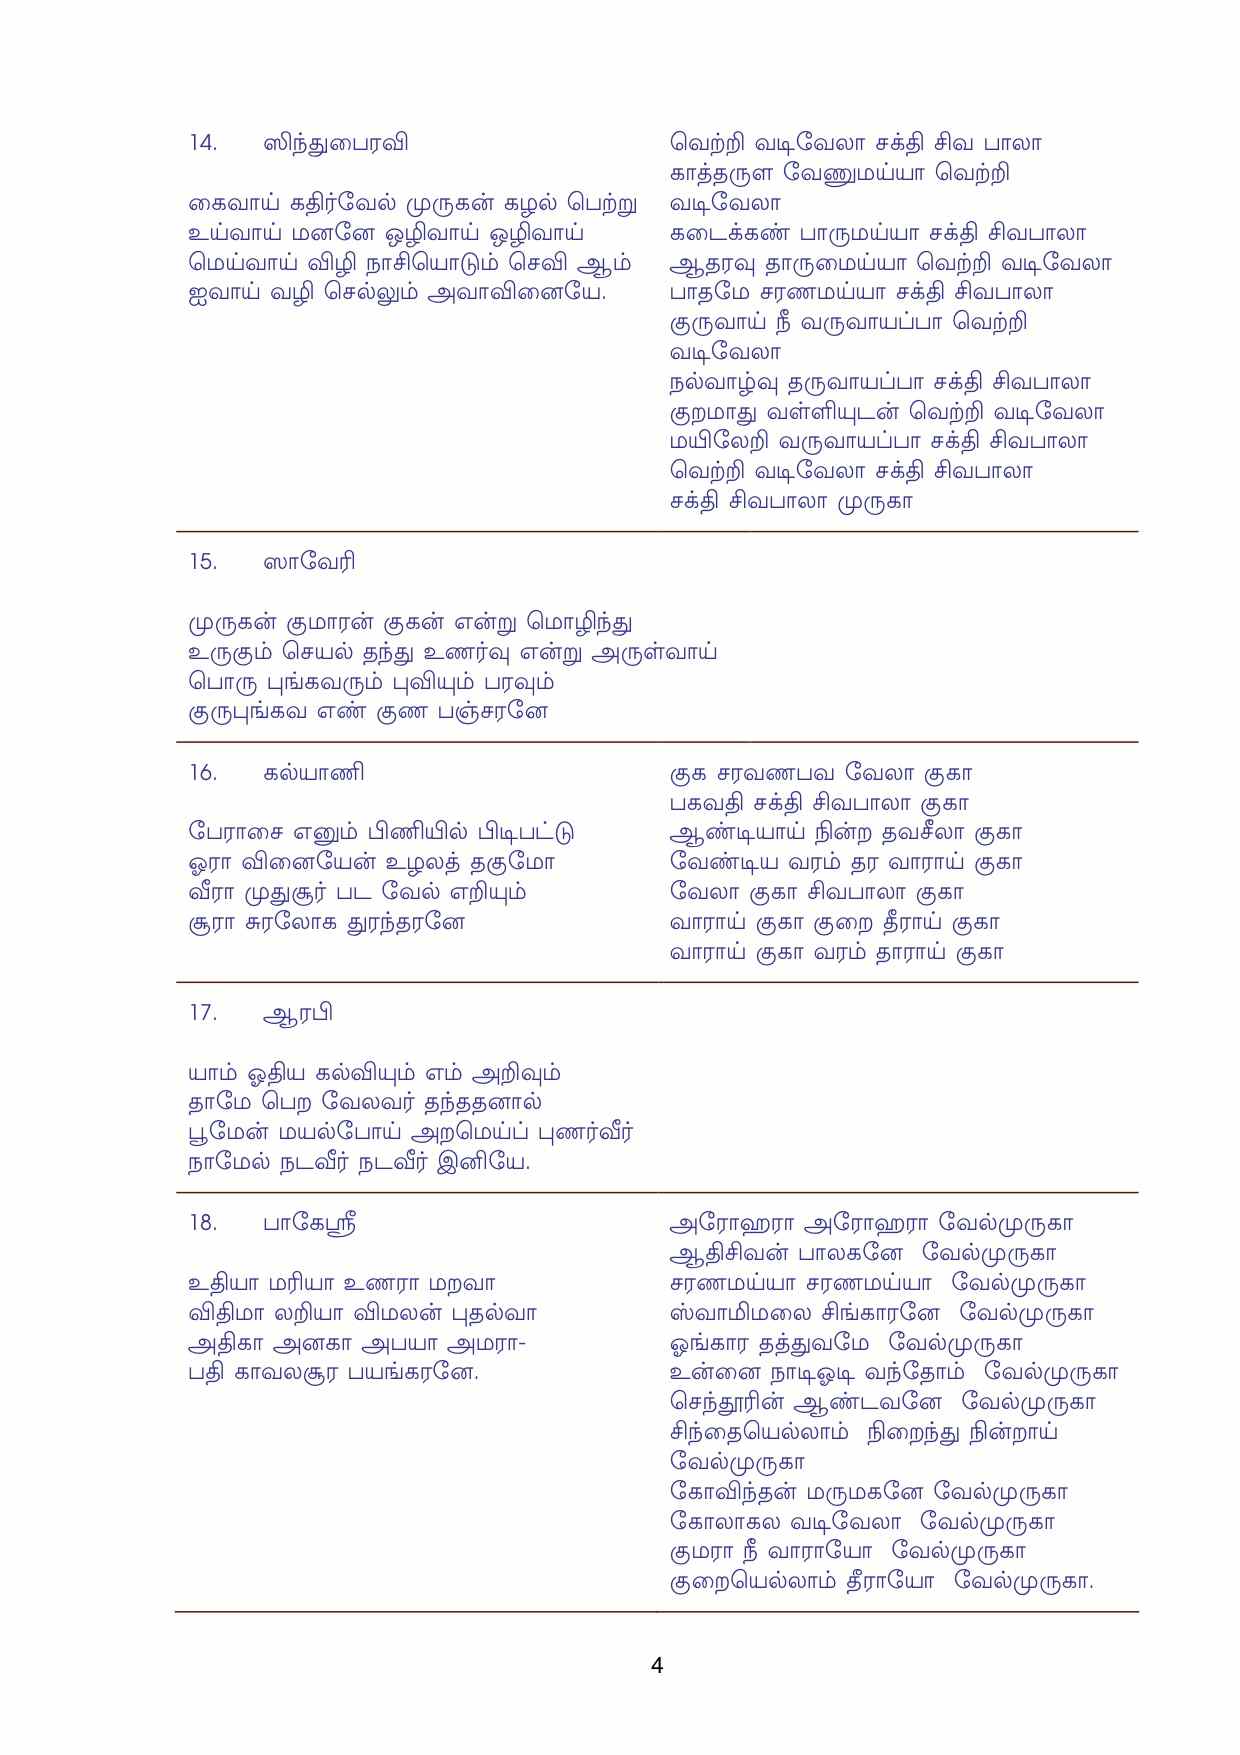 14. ஸிந்துபைரவி
கைவாய் கதிர்வேல் முருகன் கழல் பெற்று
உய்வாய் மனனே ஒழிவாய் ஒழிவாய்
மெய்வாய் விழி நாசியொடும் செவி ஆம்
ஐவாய் வழி செல்லும் அவாவினையே.
வெற்றி வடிவேலா சக்தி சிவ பாலா
காத்தருள வேணுமய்யா வெற்றி
வடிவேலா
கடைக்கண் பாருமய்யா சக்தி சிவபாலா
ஆதரவு தாருமைய்யா வெற்றி வடிவேலா
பாதமே சரணமய்யா சக்தி சிவபாலா
குருவாய் நீ வருவாயப்பா வெற்றி
வடிவேலா
நல்வாழ்வு தருவாயப்பா சக்தி சிவபாலா
குறமாது வள்ளியுடன் வெற்றி வடிவேலா
மயிலேறி வருவாயப்பா சக்தி சிவபாலா
வெற்றி வடிவேலா சக்தி சிவபாலா
சக்தி சிவபாலா முருகா
15. ஸாவேரி
முருகன் குமாரன் குகன் என்று மொழிந்து
உருகும் செயல் தந்து உணர்வு என்று அருள்வாய்
பொரு புங்கவரும் புவியும் பரவும்
குருபுங்கவ எண் குண பஞ்சரனே
16. கல்யாணி
பேராசை எனும் பிணியில் பிடிபட்டு
ஓரா வினையேன் உழலத் தகுமோ
வீரா முதுசூர் பட வேல் எறியும்
சூரா சுரலோக துரந்தரனே
குக சரவணபவ வேலா குகா
பகவதி சக்தி சிவபாலா குகா
ஆண்டியாய் நின்ற தவசீலா குகா
வேண்டிய வரம் தர வாராய் குகா
வேலா குகா சிவபாலா குகா
வாராய் குகா குறை தீராய் குகா
வாராய் குகா வரம் தாராய் குகா
17. ஆரபி
யாம் ஓதிய கல்வியும் எம் அறிவும்
தாமே பெற வேலவர் தந்ததனால்
பூமேன் மயல்போய் அறமெய்ப் புணர்வீர்
நாமேல் நடவீர் நடவீர் இனியே.
18. பாகேஸ்ரீ
உதியா மரியா உணரா மறவா
விதிமா லறியா விமலன் புதல்வா
அதிகா அனகா அபயா அமரா-
பதி காவலசூர பயங்கரனே.
அரோஹரா அரோஹரா வேல்முருகா
ஆதிசிவன் பாலகனே வேல்முருகா
சரணமய்யா சரணமய்யா வேல்முருகா
ஸ்வாமிமலை சிங்காரனே வேல்முருகா
ஓங்கார தத்துவமே வேல்முருகா
உன்னை நாடிஓடி வந்தோம் வேல்முருகா
செந்தூரின் ஆண்டவனே வேல்முருகா
சிந்தையெல்லாம் நிறைந்து நின்றாய்
வேல்முருகா
கோவிந்தன் மருமகனே வேல்முருகா
கோலாகல வடிவேலா வேல்முருகா
குமரா நீ வாராயோ வேல்முருகா
குறையெல்லாம் தீராயோ வேல்முருகா.
4